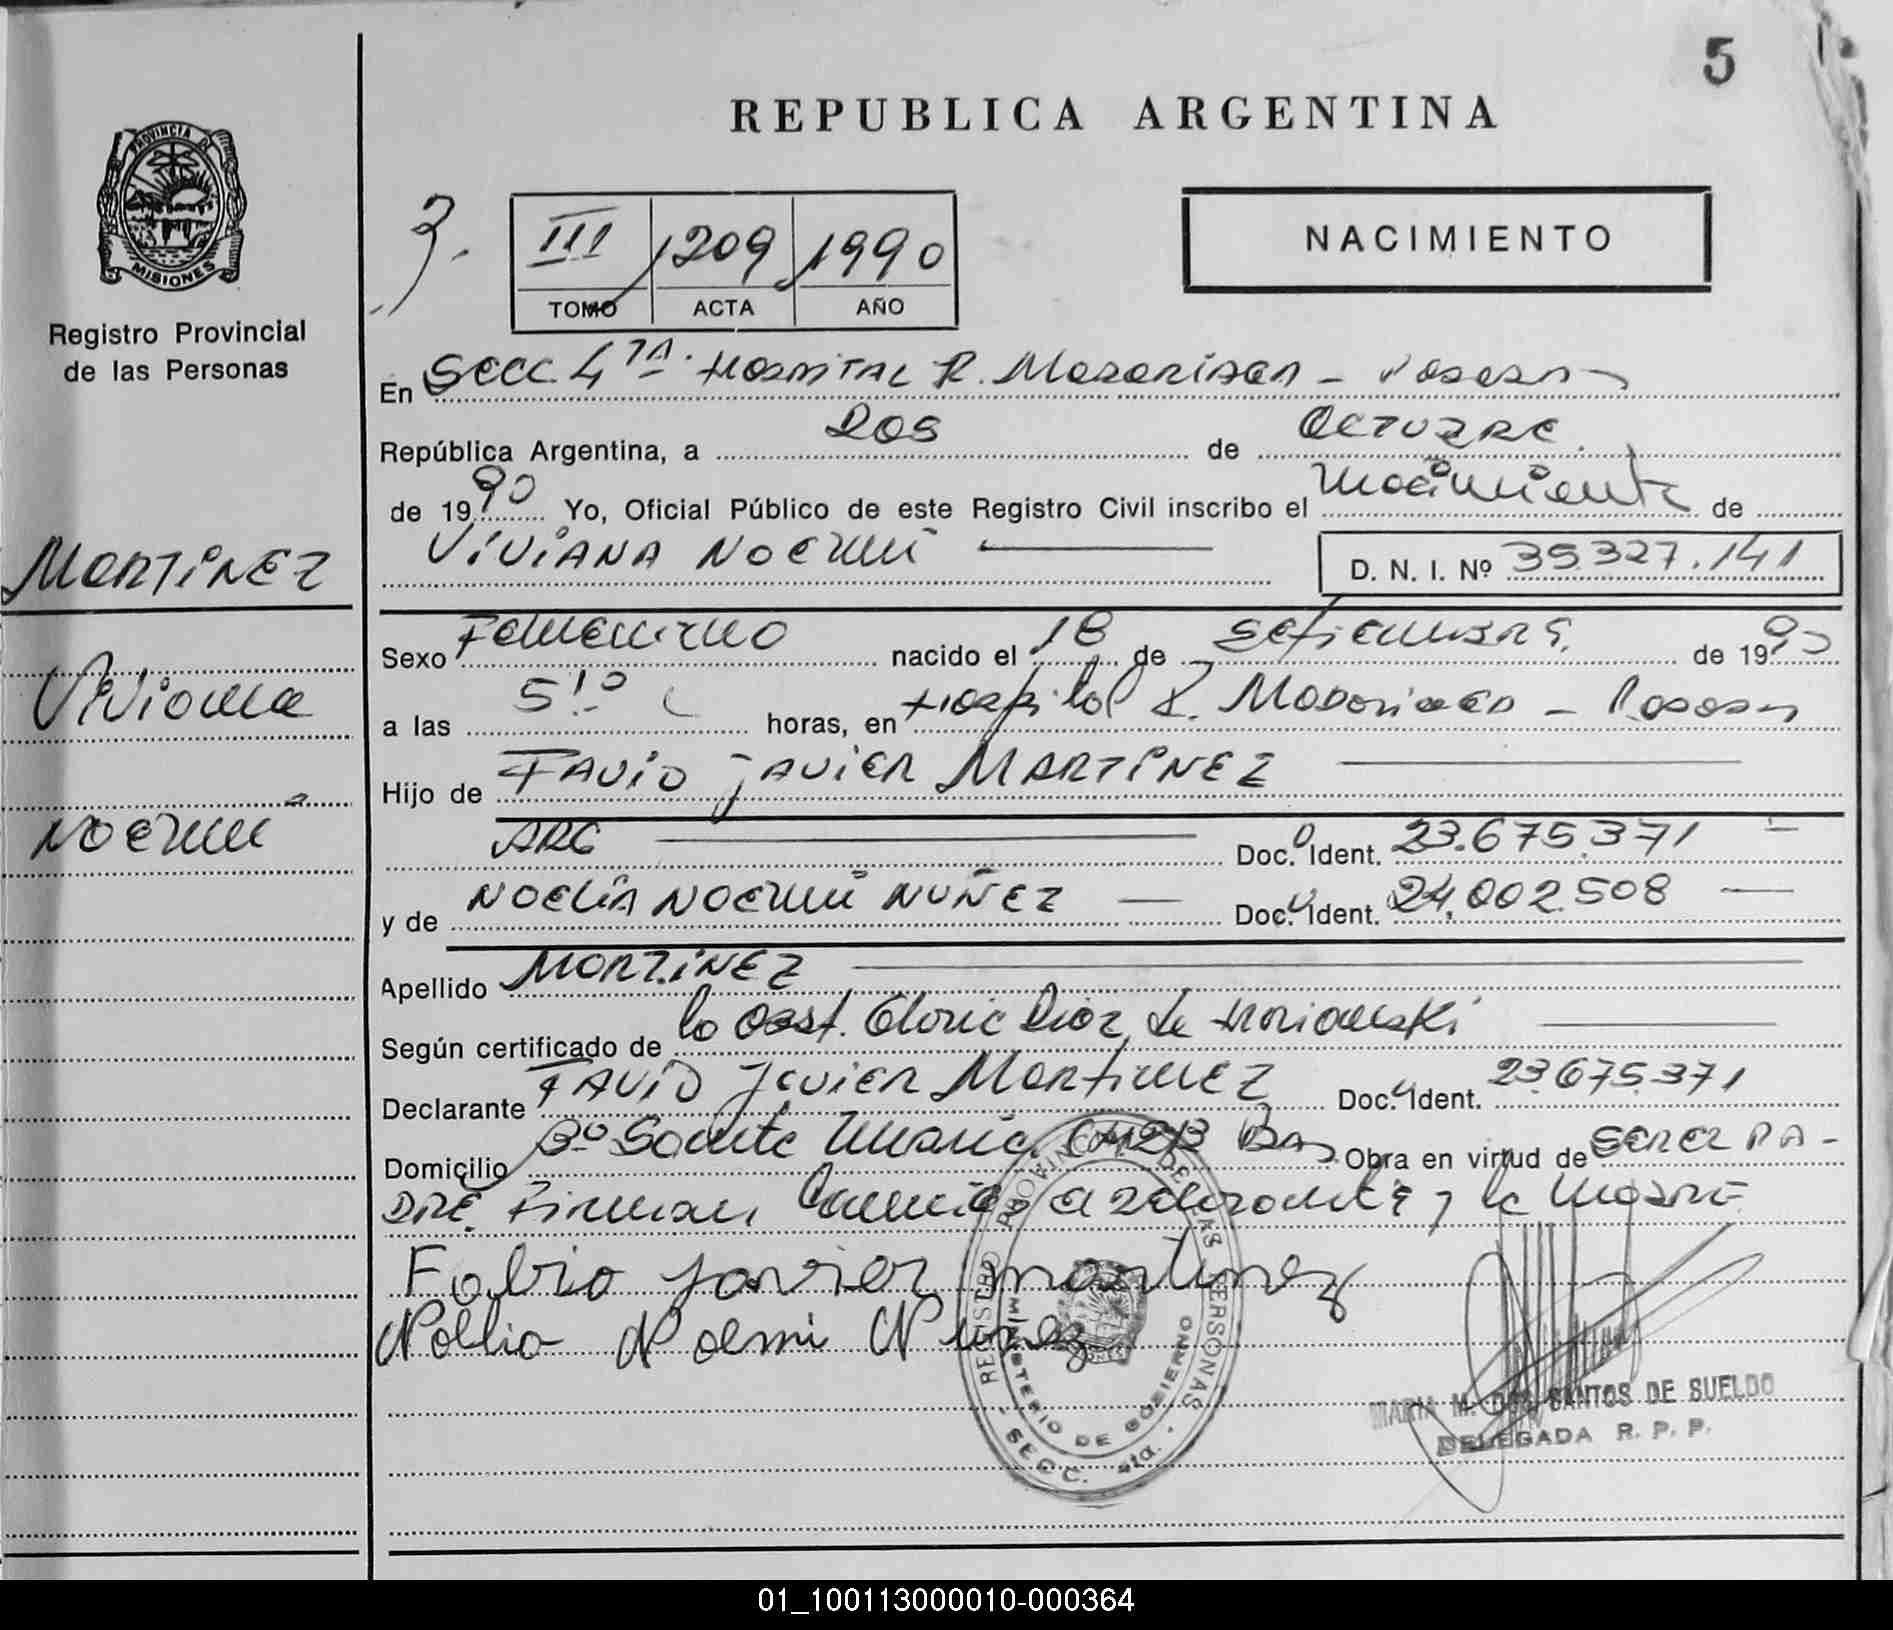 5
REPUBLICA ARGENTINA
PROVINCIA DE
MISIONES
Registro Provincial
de las Personas
3.
III 1209 1990
TOMO ACTA AÑO
NACIMIENTO
En Secc. 4TA. Hospital R. Madariaga - Posadas
República Argentina, a Dos de Octubre
de 1990 Yo, Oficial Público de este Registro Civil inscribo el nacimiento de
VIVIANA NOEMÍ
D. N. I. Nº 35.327.141
MARTINEZ
Viviana
Noemí
Sexo Femenino nacido el 18 de Setiembre de 1990
a las 5:10 horas, en Hospital R. Madariaga - Posadas
Hijo de FAVIO JAVIER MARTINEZ
ARG Doc. Ident. 23.675.371
y de NOELIA NOEMÍ NUÑEZ Doc. Ident. 24.002.508
Apellido MARTINEZ
Según certificado de la Obst. Gloria Diaz de
Declarante FAVIO Javier Martinez Doc. Ident. 23.675.371
Domicilio Bº Santa Maria Obra en virtud de ser el PA-
DRE. Firman el declarante y la madre
Fabio Javier Martinez
Noelia Noemi Nuñez
REGISTRO PROVINCIAL DE LAS PERSONAS
MINISTERIO DE GOBIERNO
- SECC. 4ta. -
MARIA M. DOS SANTOS DE SUELDO
DELEGADA R. P. P.
01_100113000010-000364